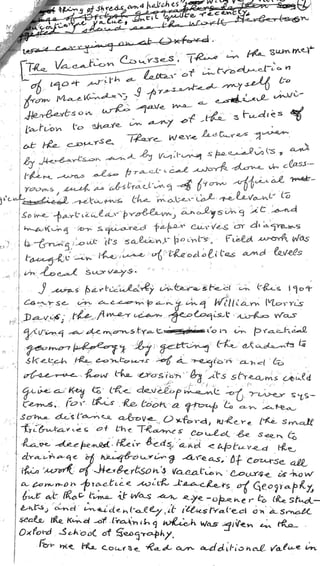 thing of shreds and patches"
until quite recently,
should see the work Herbertson
was carrying on at Oxford.
[The Vacation Courses. Thus in the summer
of 1904 with a letter of introduction
from Mackinder, I presented myself to
Herbertson who gave me a cordial invi-
tation to share in any of the studies of
at the course. There were lectures given
by Herbertson and by visiting specialists, and
there was also practical work done in class-
rooms, such as abstracting of from official
returns the material relevant to
some particular problem, analysing it and
making on squared paper curves or diagrams
to bring out its salient points. Field work was
taught in the use of theodolites and levels
in local surveys.
I was particularly interested in this 1904
course in accompanying William Morris
Davis, the American geologist who was
giving a demonstration in practical
geomorphology by getting the students to
sketch the contours of a region and to
observe how the erosion by its streams could
give a key to the development of river sys-
tems. For this he took a group to an area
some distance above Oxford, where the small
tributaries of the Thames could be seen to
have deepened their beds and captured the
drainage of neigbouring areas. Of course all
this work of Herbertson's Vacation Course is now
a common practice with teachers of Geography,
but at that time it was an eye-opener to the stud-
ents, and incidentally, it illustrated on a small
scale the kind of training which was given in the
Oxford School of Geography.
For me the course had an additional value in